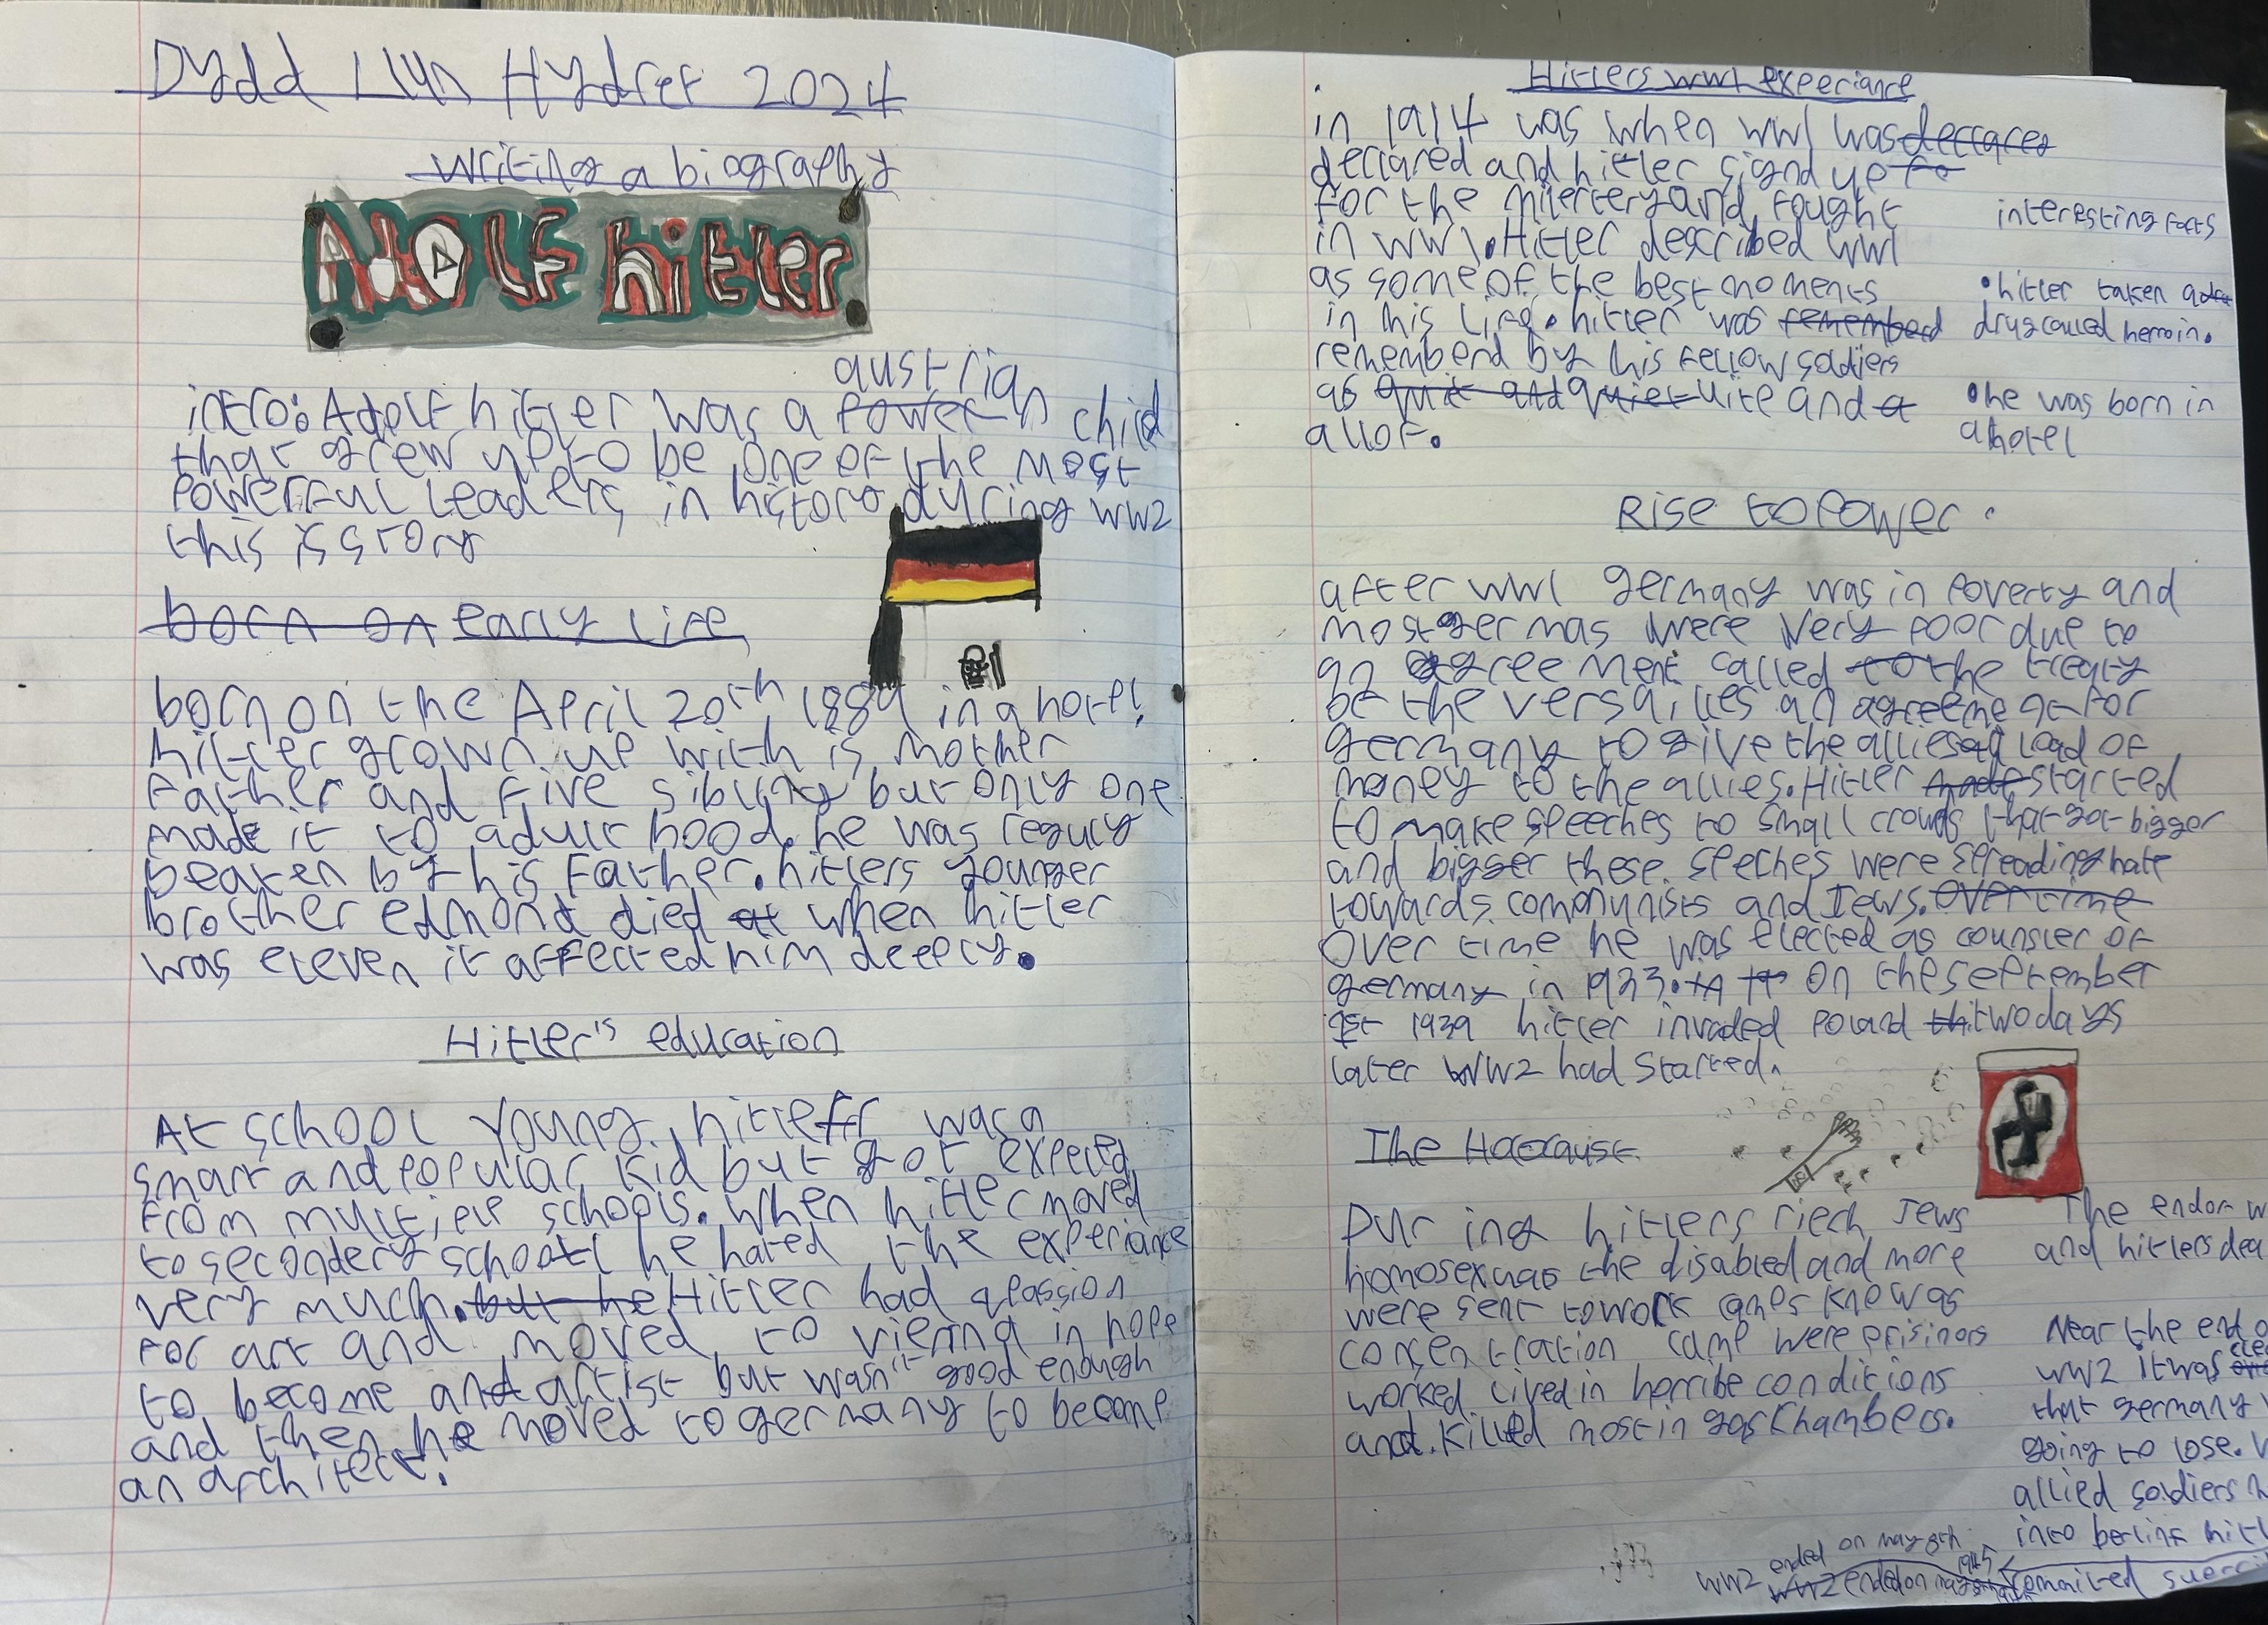 Dydd Llun Hydref 2024
writing a biography
AdOLF hitler
austrian
intro: Adolf hitler was a power child
that grew up to be one of the most
powerful leaders in history during ww2
this is story
born on early life
born on the April 20th 1889 in a hotel
hitler grown up with is mother
father and five sibling but only one
made it to adult hood. he was reguly
beaten by his father. hitlers younger
brother edmond died at when hitler
was eleven it affected him deeply.
Hitler's education
At school young hitler was a
smart and popular kid but got expected
from multiple schools. when hitler moved
to secondery school he hated the experiance
very much. but he Hitler had a passion
for art and moved to vienna in hope
to become and artist but wasn't good enough
and then he moved to germany to become
an architect.
Hitlers ww1 experiance
in 1914 was when ww1 was declared
declared and hitler signd up to
for the milertery and fought
in ww1. Hitler described ww1
as some of the best moments
in his life. hitler was rememberd
rememberd by his fellow soldiers
as quit and quiet uite and a
allof.
interesting facts
• hitler taken a
drug called herroin.
• he was born in
a hotel
Rise to power
after ww1 germany was in poverty and
most germas were very poor due to
an agreement called to the treaty
of the versailles an agreement for
germany to give the allies a load of
money to the allies. Hitler made started
to make speeches to small crowds that got bigger
and bigger these speches were spreading hate
towards communists and Jews. over time
over time he was elected as counsler of
germany in 1933. on the september
1st 1939 hitler invaded poland thi two days
later ww2 had started.
The Holocaust
During hitlers riech Jews
homosexuas the disabled and more
were sent to work camps know as
concentration camp were prisinors
worked lived in horribe conditions
and killed most in gas Khambers.
The end of w
and hitlers dea
Near the end o
ww2 it was clea
that germany
going to lose.
allied soldiers
into berlin hitl
commited
ww2 ended on may 8th 1945
ww2 ended on may